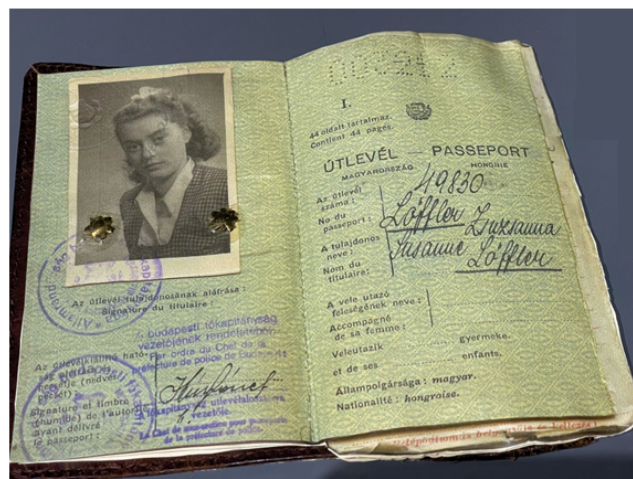 Az útlevél tulajdonosának aláírása :
Signature du titulaire :
A budapesti főkapitányság
vezetőjének rendeletéből:
Par ordre du Chef de la
préfecture de police de Budapest
Signature et timbre
(humide) de l'autorité
ayant délivré
le passeport :
vezetője.
Le Chef de
de la préfecture de police.
002942
I.
44 oldalt tartalmaz.
Contient 44 pages.
ÚTLEVÉL — PASSEPORT
MAGYARORSZÁG HONGRIE
Az útlevél
száma :
No du
passeport :
49830
A tulajdonos
neve :
Löffler Zuzsanna
Nom du
titulaire :
Susanne Löffler
A vele utazó
feleségének neve :
Accompagné
de sa femme :
Veleutazik gyermeke.
et de ses enfants.
Állampolgársága : magyar.
Nationalité : hongroise.